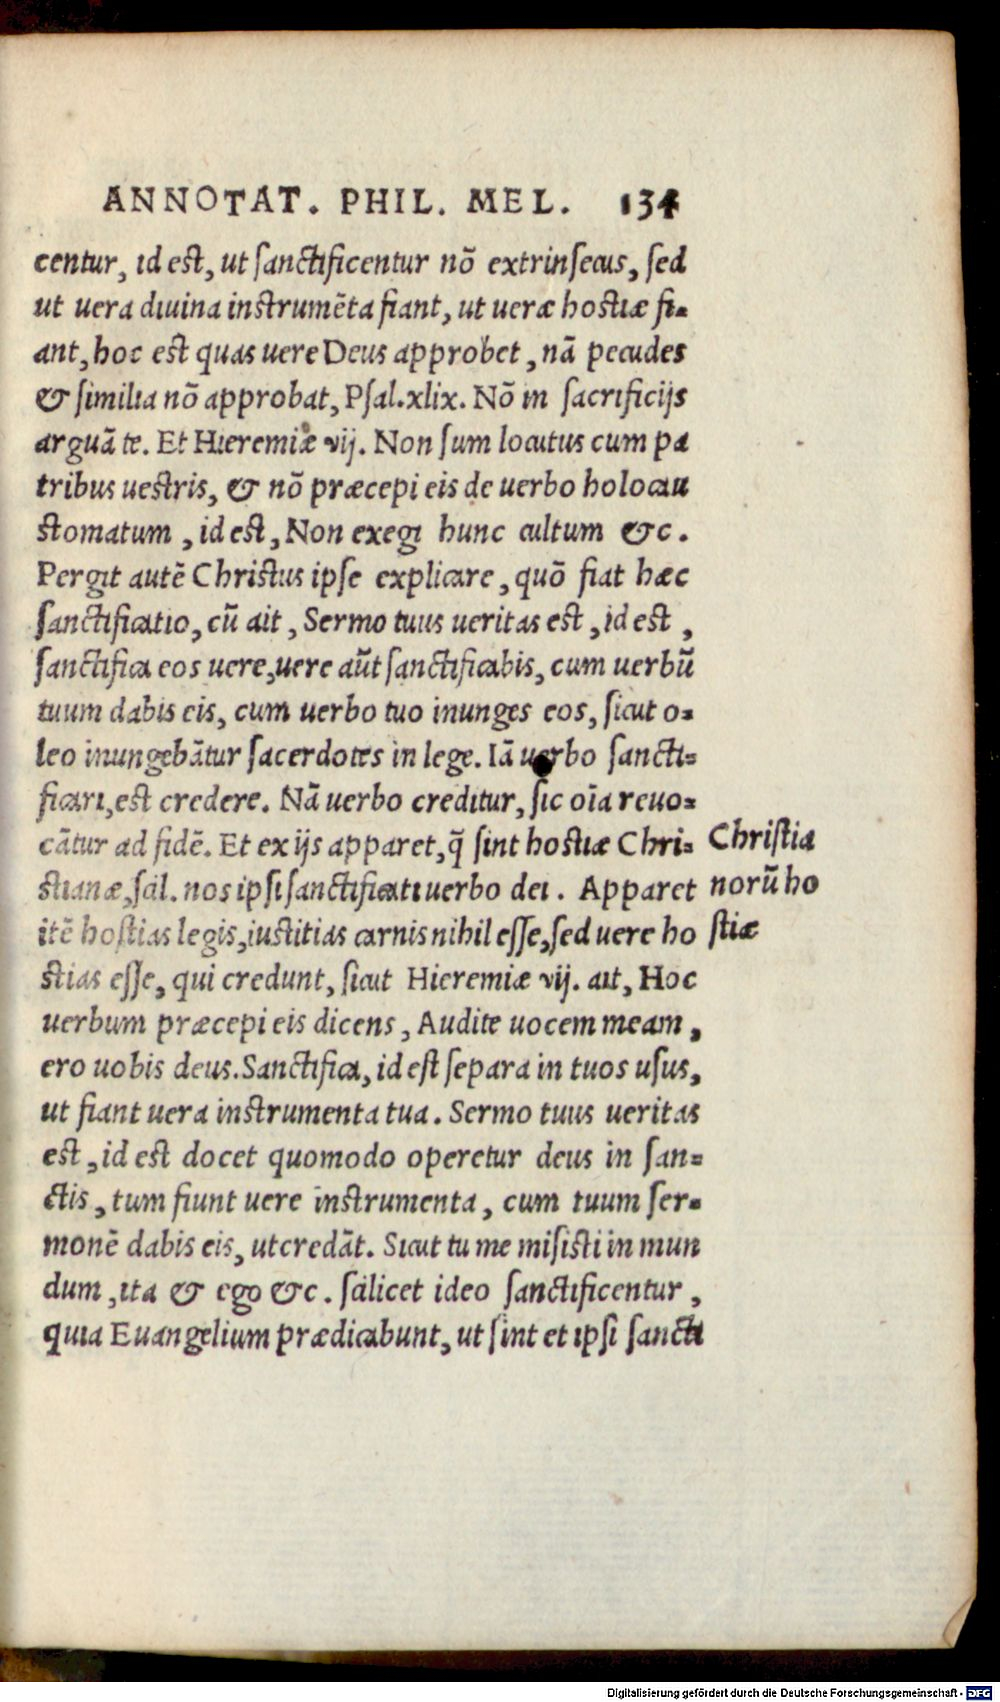 ANNOTAT. PHIL. MEL. 134
centur, id est, ut sanctificentur nō extrinsecus, sed
ut uera diuina instrumēta fiant, ut ueræ hostiæ fi-
ant, hoc est quas uere Deus approbet, nā pecudes
& similia nō approbat, Psal.xlix. Nō in sacrificijs
arguā te. Et Hieremiæ vij. Non sum locutus cum pa
tribus uestris, & nō præcepi eis de uerbo holocau
stomatum, id est, Non exegi hunc cultum &c.
Pergit autē Christus ipse explicare, quō fiat hæc
sanctificatio, cū ait, Sermo tuus ueritas est, id est,
sanctifica eos uere, uere aūt sanctificabis, cum uerbū
tuum dabis eis, cum uerbo tuo inunges eos, sicut o-
leo inungebātur sacerdotes in lege. Iā uerbo sancti-
ficari, est credere. Nā uerbo creditur, sic oīa reuo-
cātur ad fidē. Et ex ijs apparet, q̄ sint hostiæ Chri-
stianæ, scil. nos ipsi sanctificati uerbo dei. Apparet
itē hostias legis, iustitias carnis nihil esse, sed uere ho
stias esse, qui credunt, sicut Hieremiæ vij. ait, Hoc
uerbum præcepi eis dicens, Audite uocem meam,
ero uobis deus. Sanctifica, id est separa in tuos usus,
ut fiant uera instrumenta tua. Sermo tuus ueritas
est, id est docet quomodo operetur deus in san-
ctis, tum fiunt uere instrumenta, cum tuum ser-
monē dabis eis, ut credāt. Sicut tu me misisti in mun
dum, ita & ego &c. scilicet ideo sanctificentur,
quia Euangelium prædicabunt, ut sint et ipsi sancti
Christia
norū ho
stiæ
Digitalisierung gefördert durch die Deutsche Forschungsgemeinschaft - DFG